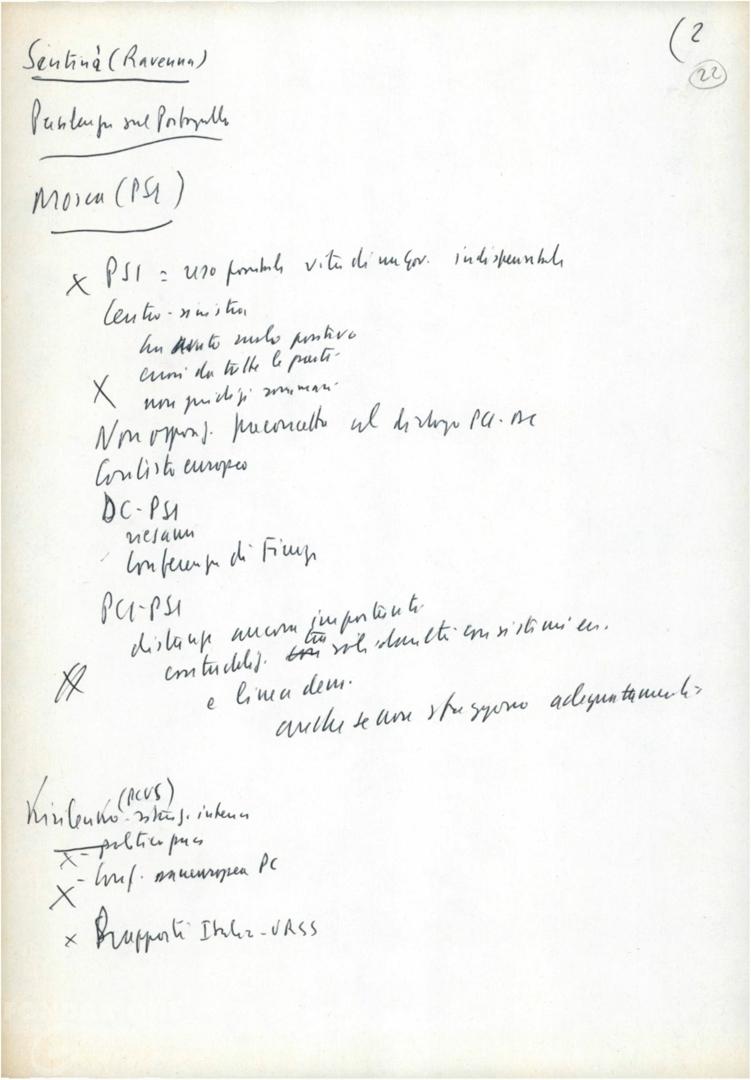 (2
22
Sentinà (Ravenna)
sul Portogallo
Mosca (PSI)
x PSI = uso possibile vita di un gov. indispensabile
Centro-sinistra
ha avuto ruolo positivo
errori da tutte le parti
x non giudizi sommari
Non oppos. preconcetta al dialogo PCI-DC
Contesto europeo
DC-PSI
riesami
Conferenza di Firenze
PCI-PSI
distanze ancora importanti
contraddiz. tra solidarietà con sistemi
e linea dem.
anche se non sfuggono adeguatamente
Kirilenko (PCUS) - situaz. interna
x - politica pace
x - Conf. paneuropea PC
x Rapporti Italia-URSS